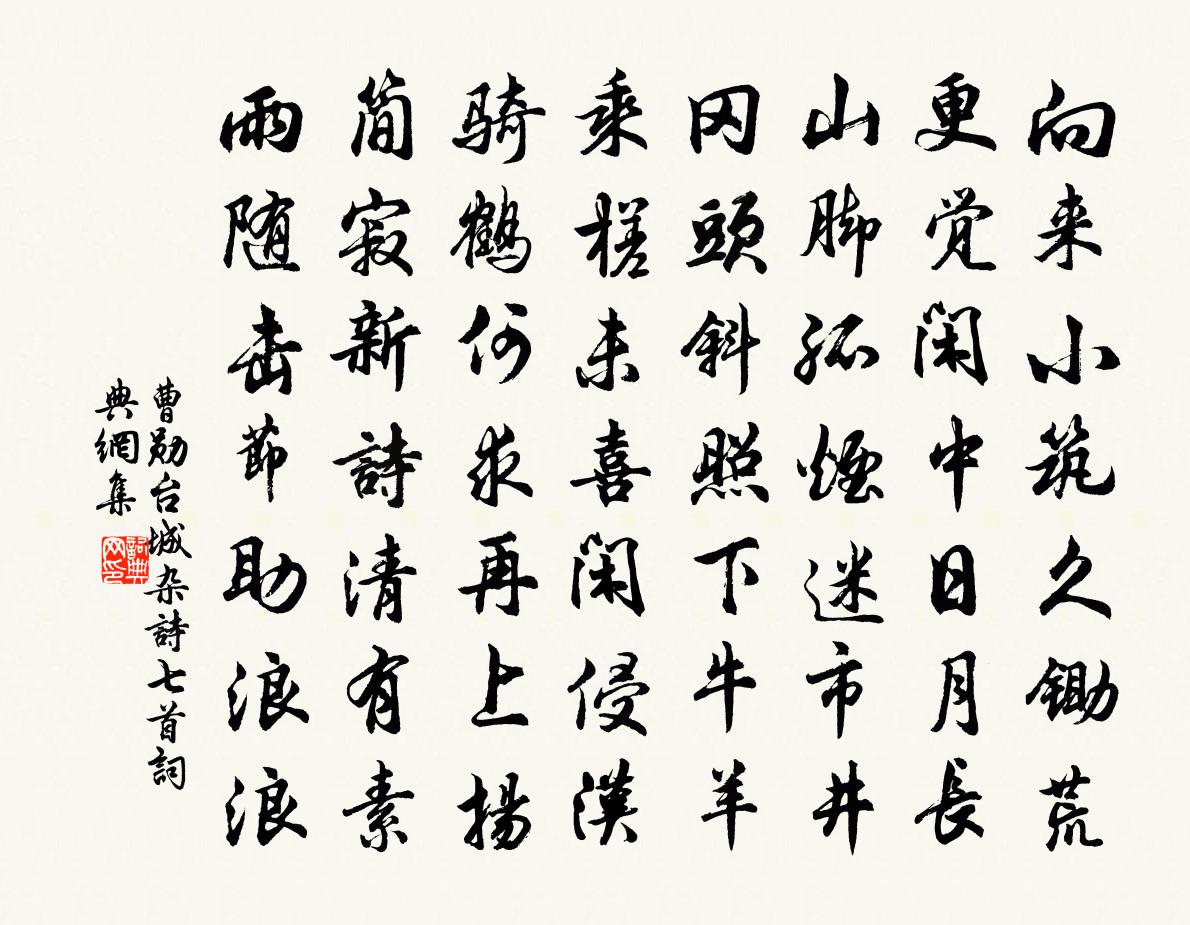 向来小筑久锄荒
更觉闲中日月長
山脚孤煙迷市井
冈頭斜照下牛羊
乘槎未喜闲侵漢
骑鶴何求再上揚
简寂新詩清有素
雨随击節助浪浪
曹勋台城杂詩七首詞
典網集
詞典网印